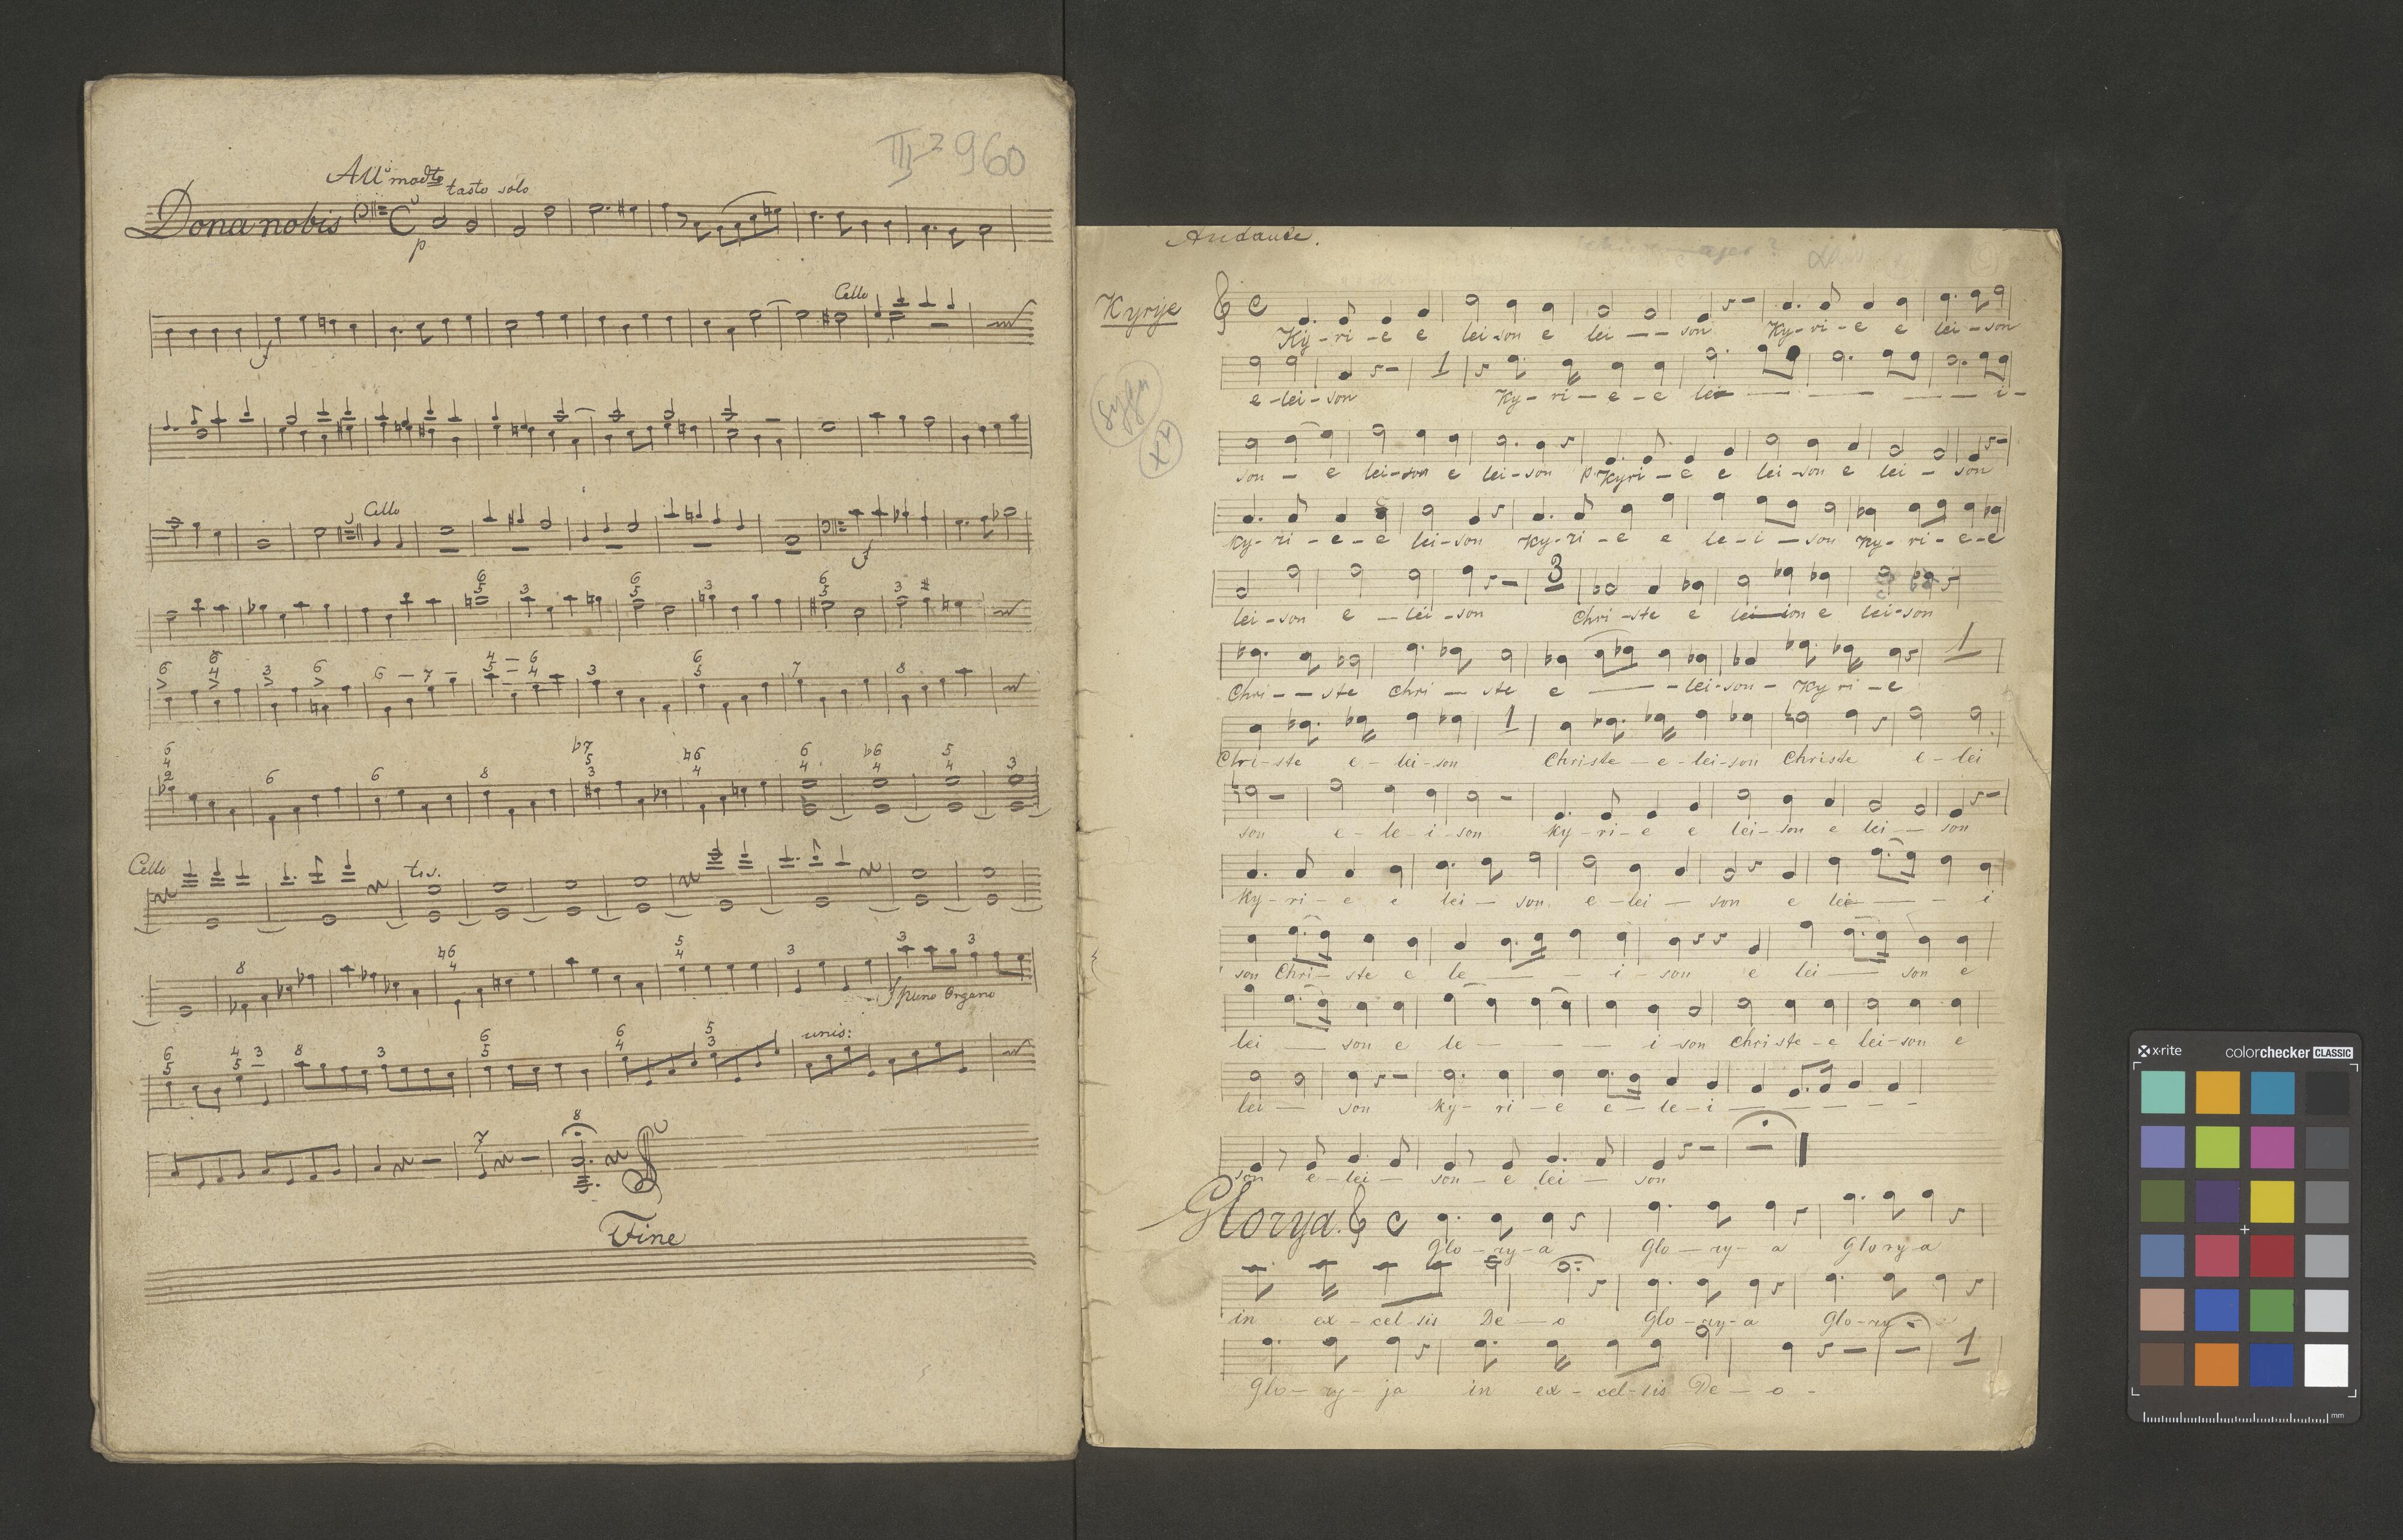 III 2 960
All° modto tasto solo
Dona nobis
p
Cello
f
Cello
f
6 5 3 6 5 3 6 5 3 #
6 6 4 3 6 6 — 7 — 4 — 6 5 — 4 3 6 5 7 8
6 4 2 6 6 8 b7 5 3 ♮6 4 6 4 b6 4 5 4 3
Cello t.s.
8 ♮6 4 5 4 3 3 3
f pieno Organo
6 5 4 3 5 — 8 3 6 5 6 4 5 3 unis:
7 8
Fine
Andante.
Kyrye
Ky - ri - e e lei - son e lei - - son Ky - ri - e e lei - son
e - lei - son 1 Ky - ri - e - e lei - i -
son - e lei - son e lei - son p. Kyri - e e lei - son e lei - son
Ky - ri - e - e lei - son Ky - ri - e e le - i - son Ky - ri - e - e
3
lei - son e - lei - son Chri - ste e lei - son e lei - son
1
Chri - - ste Chri - ste e - lei - son - Ky ri - e
1
Chri - ste e - lei - son Christe - e - lei - son Christe e - lei
son e - le - i - son Ky - ri - e e lei - son e lei - son
Ky - ri - e e lei - son e - lei - son e lei - - i
son Chri - ste e le - - i - son e lei - son e
lei - son e le - - - i - son Chri ste - e lei - son e
lei - son Ky - ri - e e - le - i - - - -
son e - lei - son - e lei - son
Glorya.
Glo - ry - a Glo - ry - a Glo ry - a
in ex - cel - sis De - o Glo - ry - a Glo - ry
1
Glo - ry - ja in ex - cel - sis De - o -
x-rite colorchecker CLASSIC
mm